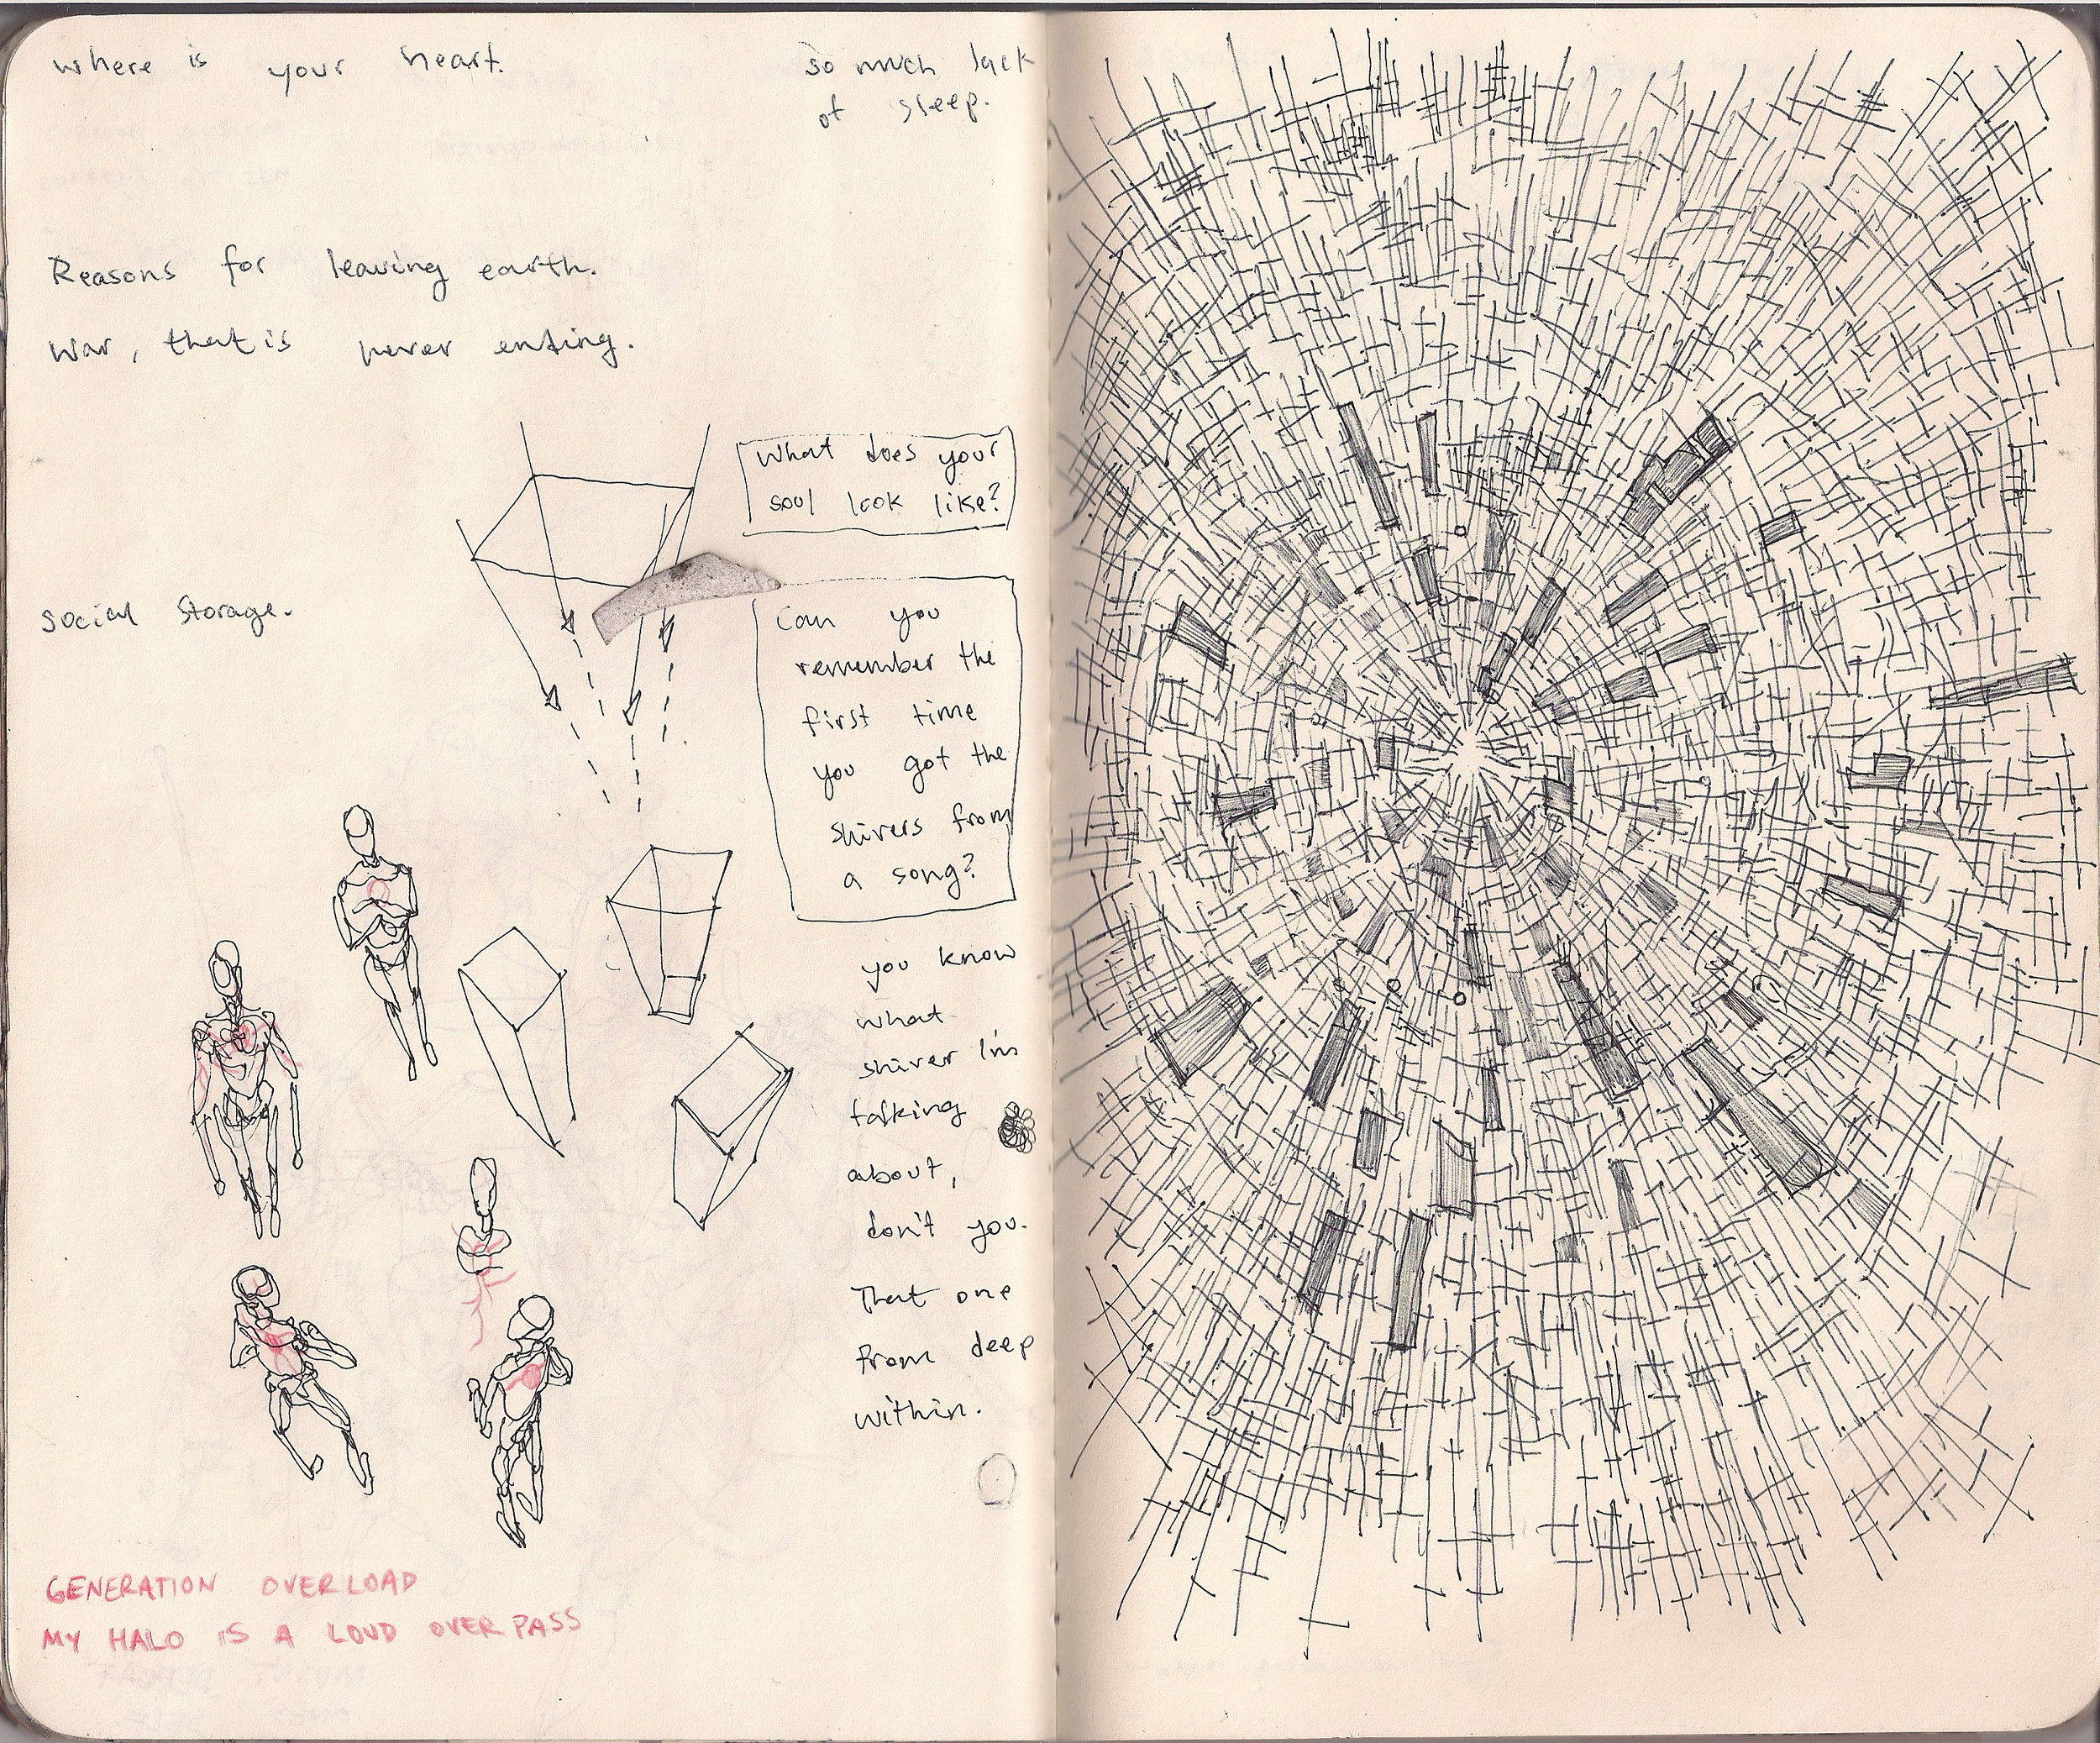 where is your heart.
so much lack
of sleep.
Reasons for leaving earth.
War, that is never ending.
What does your
soul look like?
social storage.
Can you
remember the
first time
you got the
shivers from
a song?
you know
what
shiver I'm
talking
about,
don't you.
That one
from deep
within.
GENERATION OVERLOAD
MY HALO IS A LOUD OVERPASS